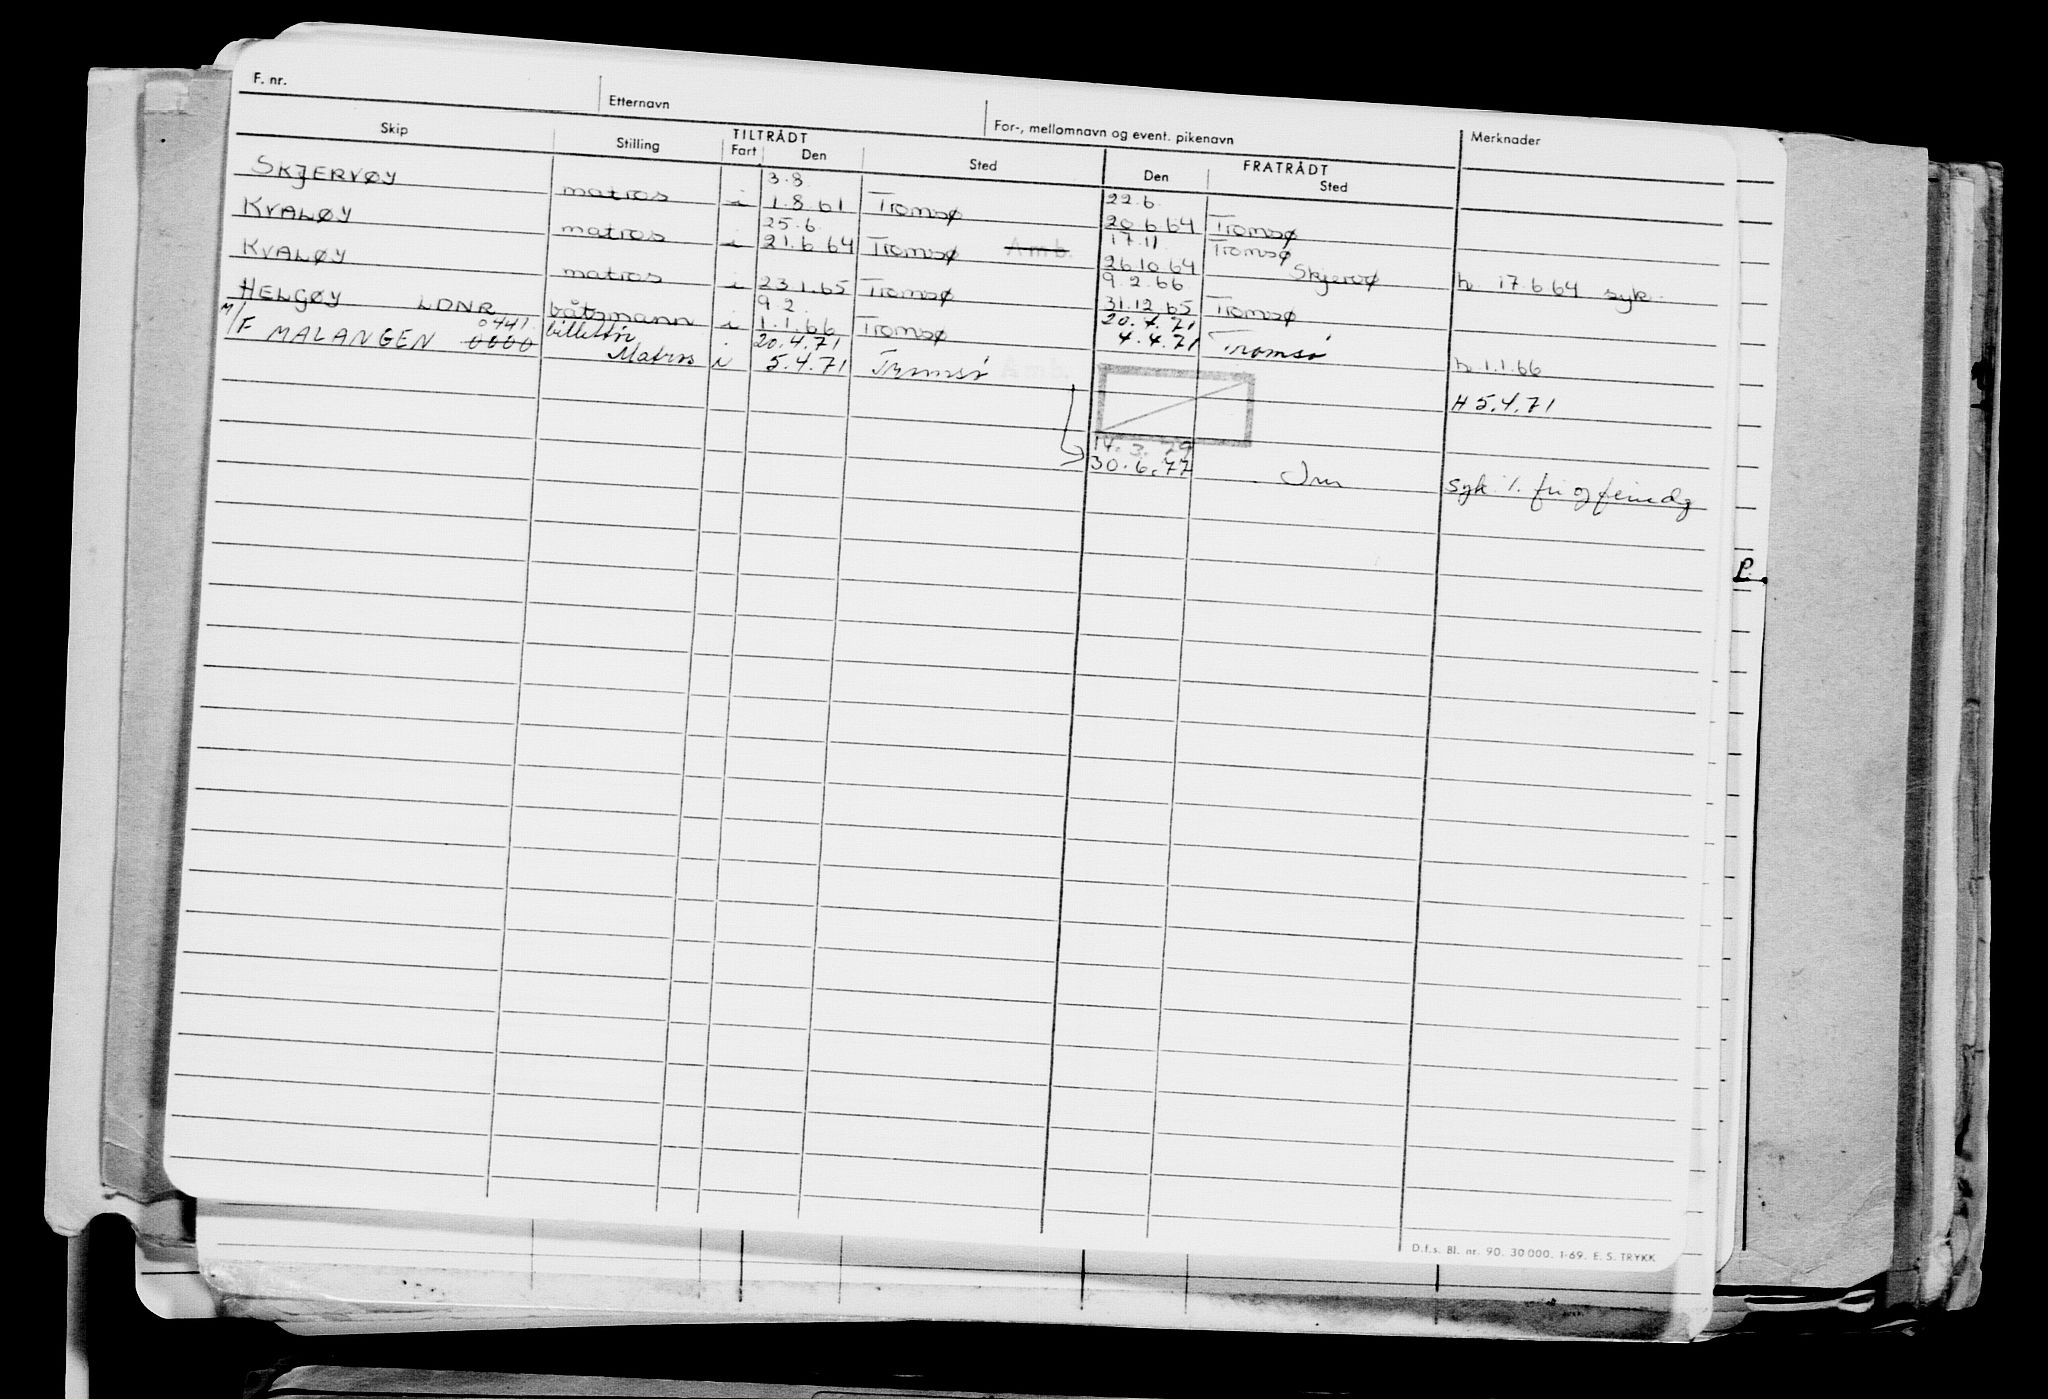 F. nr. Etternavn For-, mellomnavn og event. pikenavn Merknader
TILTRÅDT FRATRÅDT
Skip Stilling Fart Den Sted Den Sted
3.8. 22.6.
SKJERVØY matros i 1.8.61 Tromsø 20.6.64 Tromsø
25.6. 17.11 Tromsø
KVALØY matros i 21.6.64 Tromsø Amb. 26.10.64 Skjervø h 17.6.64 syk.
9.2.66
KVALØY matros i 23.1.65 Tromsø 31.12.65 Tromsø
9.2. 20.4.71
HELGØY LDNR båtsmann i 1.1.66 Tromsø 4.4.71 Tromsø h 1.1.66
0441. billettør 20.4.71
M/F MALANGEN 0000 Matros i 5.4.71 Tromsø Amb. H 5.4.71
14.3.79
30.6.77 syk. / . fri og feriedg
P.
D.f.s. Bl. nr. 90. 30 000. 1-69. E. S. TRYKK